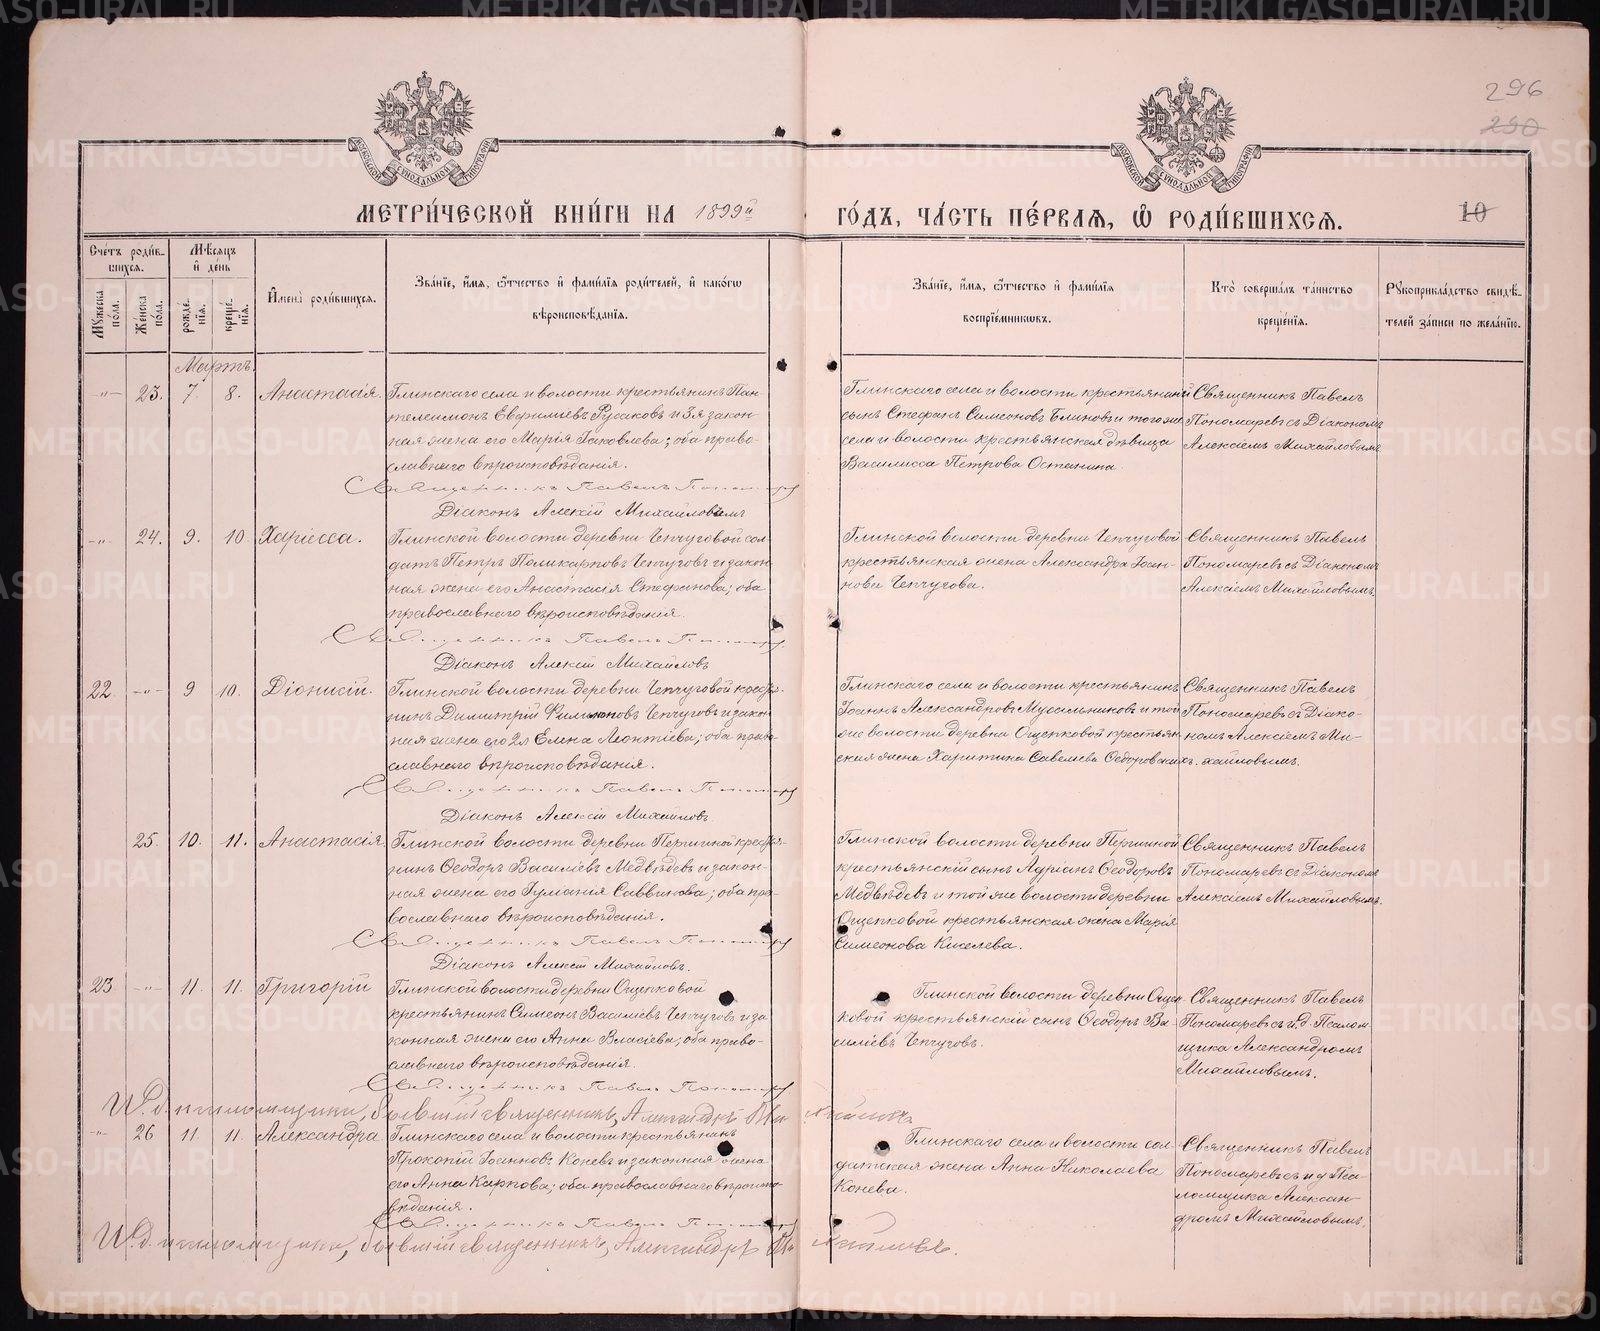 296
290
МЕТРИ́ЧЕСКОЙ КНИ́ГИ НА 1899й ГО́ДЪ, ЧА́СТЬ ПЕ́РВАЯ, Ѽ РОДИ́ВШИХСЯ.
10
Сче́тъ роди́в-
шихся.
Мꙋжеска по́ла.
Же́нска по́ла.
Мѣ́сяцъ
и҆ де́нь
рожде́нїѧ.
креще́нїѧ.
И҆мена̀ роди́вшихся.
Зва́нїе, и҆́мѧ, ѻ҆́тчество и҆ фами́лїѧ роди́телей, и҆ како́гѡ
вѣроисповѣ́данїѧ.
Зва́нїе, и҆́мѧ, ѻ҆́тчество и҆ фами́лїѧ
воспрїе́мникѡвъ.
Кто̀ соверша́лъ та́инство
креще́нїѧ.
Рꙋкоприкла́дство свидѣ́-
телей за́писи по жела́нїю.
Мартъ.
-"- 23. 7. 8. Анастасія.
Глинскаго села и волости крестьянинъ Пан-
телеимонъ Евфиміевъ Русаковъ и 3я закон-
ная жена его Марія Іаковлева; оба право-
славнаго вѣроисповѣданія.
Священникъ Павелъ Пономаревъ
Діаконъ Алексій Михайловъ
Глинскаго села и волости крестьянинъ
сынъ Стефанъ Симеоновъ Блиновъ и того же
села и волости крестьянская дѣвица
Василисса Петрова Останина
Священникъ Павелъ
Пономаревъ съ Діакономъ
Алексіемъ Михайловымъ
-"- 24. 9. 10 Харіесса.
Глинской волости деревни Чепчуговой сол-
датъ Петръ Поликарповъ Чепчуговъ и закон
ная жена его Анастасія Стефанова; оба
православнаго вѣроисповѣданія.
Священникъ Павелъ Пономаревъ
Діаконъ Алексій Михайловъ
Глинской волости деревни Чепчуговой
крестьянская жена Александра Іоан-
нова Чепчугова.
Священникъ Павелъ
Пономаревъ съ Діакономъ
Алексіемъ Михайловымъ
22 -"- 9 10. Діонисій.
Глинской волости деревни Чепчуговой кресть-
нинъ Димитрій Филиповъ Чепчуговъ и закон
ная жена его 2я Елена Леонтіева; оба право
славнаго вѣроисповѣданія.
Священникъ Павелъ Пономаревъ
Діаконъ Алексій Михайловъ
Глинскаго села и волости крестьянинъ
Іоаннъ Александровъ Мусальниковъ и той
же волости деревни Ощепковой крестьян
ская жена Харитина Савельева Ѳедоровскихъ.
Священникъ Павелъ
Пономаревъ съ Діако-
номъ Алексіемъ Ми-
хайловымъ.
25. 10. 11. Анастасія.
Глинской волости деревни Першиной кресть-
нинъ Ѳеодоръ Василіевъ Медвѣдевъ и закон-
ная жена его Гуланія Саввинова; оба пра
вославнаго вѣроисповѣданія.
Священникъ Павелъ Пономаревъ
Діаконъ Алексій Михайловъ.
Глинской волости деревни Першиной
крестьянскій сынъ Адріанъ Ѳеодоровъ
Медвѣдевъ и той же волости деревни
Ощепковой крестьянская жена Марія
Симеонова Киселева.
Священникъ Павелъ
Пономаревъ съ Діакономъ
Алексіемъ Михайловымъ.
23 -"- 11. 11. Григорій
Глинской волости деревни Ощепковой
крестьянинъ Симеонъ Василіевъ Чепчуговъ и за
конная жена его Анна Власіева; оба право-
славнаго вѣроисповѣданія.
Священникъ Павелъ Пономаревъ
И. д. псаломщика, бывшій священникъ, Александръ Михайловъ
Глинской волости деревни Ощеп
ковой крестьянскій сынъ Ѳеодоръ Ва-
силіевъ Чепчуговъ.
Священникъ Павелъ
Пономаревъ съ и. д. Псалом-
щика Александромъ
Михайловымъ.
-"- 26 11. 11. Александра
Глинскаго села и волости крестьянинъ
Прокопій Іоанновъ Коневъ и законная жена
его Анна Карпова; оба православнаго вѣроиспо
вѣданія.
Священникъ Павелъ Пономаревъ
И. д. псаломщика, бывшій священникъ, Александръ Михайловъ.
Глинскаго села и волости сол-
датская жена Анна Николаева
Конева.
Священникъ Павелъ
Пономаревъ съ и д Пса-
ломщика Алексан-
дромъ Михайловымъ.
METRIKI.GASO-URAL.RU